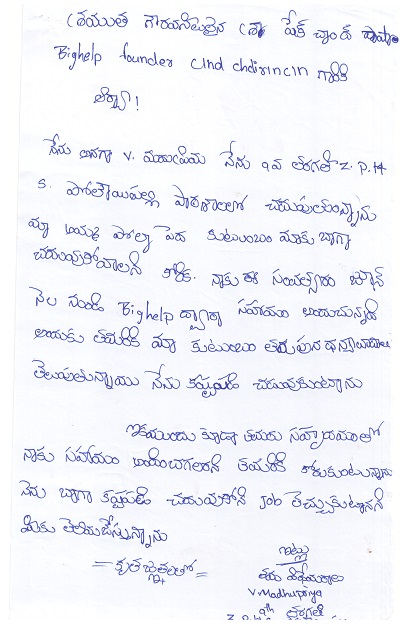 శ్రీయుత గౌరవనీయులైన శ్రీ షేక్ చాంద్ పాషా
Bighelp founder and chairman గారికి
ఆర్యా!
నేను అనగా V. మధుప్రియ నేను 9వ తరగతి Z.P.H
S. పోతాయిపల్లి పాఠశాలలో చదువుతున్నాను
మా అయ్య చాలా పేద కుటుంబం మాకు బాగా
చదువుకోవాలని కోరిక. నాకు ఈ సంవత్సరం జూన్
నెల నుండి Bighelp ద్వారా సహాయం అందుచున్నది
అందుకు తమరికి మా కుటుంబం తరుపున ధన్యవాదాలు
తెలుపుతున్నాను నేను కష్టపడి చదువుకుంటాను
ఇకముందు కూడా తమరు సహృదయంతో
నాకు సహాయం అందించగలరని తమరికి కోరుకుంటున్నాను
నేను బాగా కష్టపడి చదువుకొని Job తెచ్చుకుంటానని
మీకు తెలియజేస్తున్నాను
= కృతజ్ఞతలతో =
ఇట్లు
తమ విధేయురాలు
V. Madhupriya
9th తరగతి